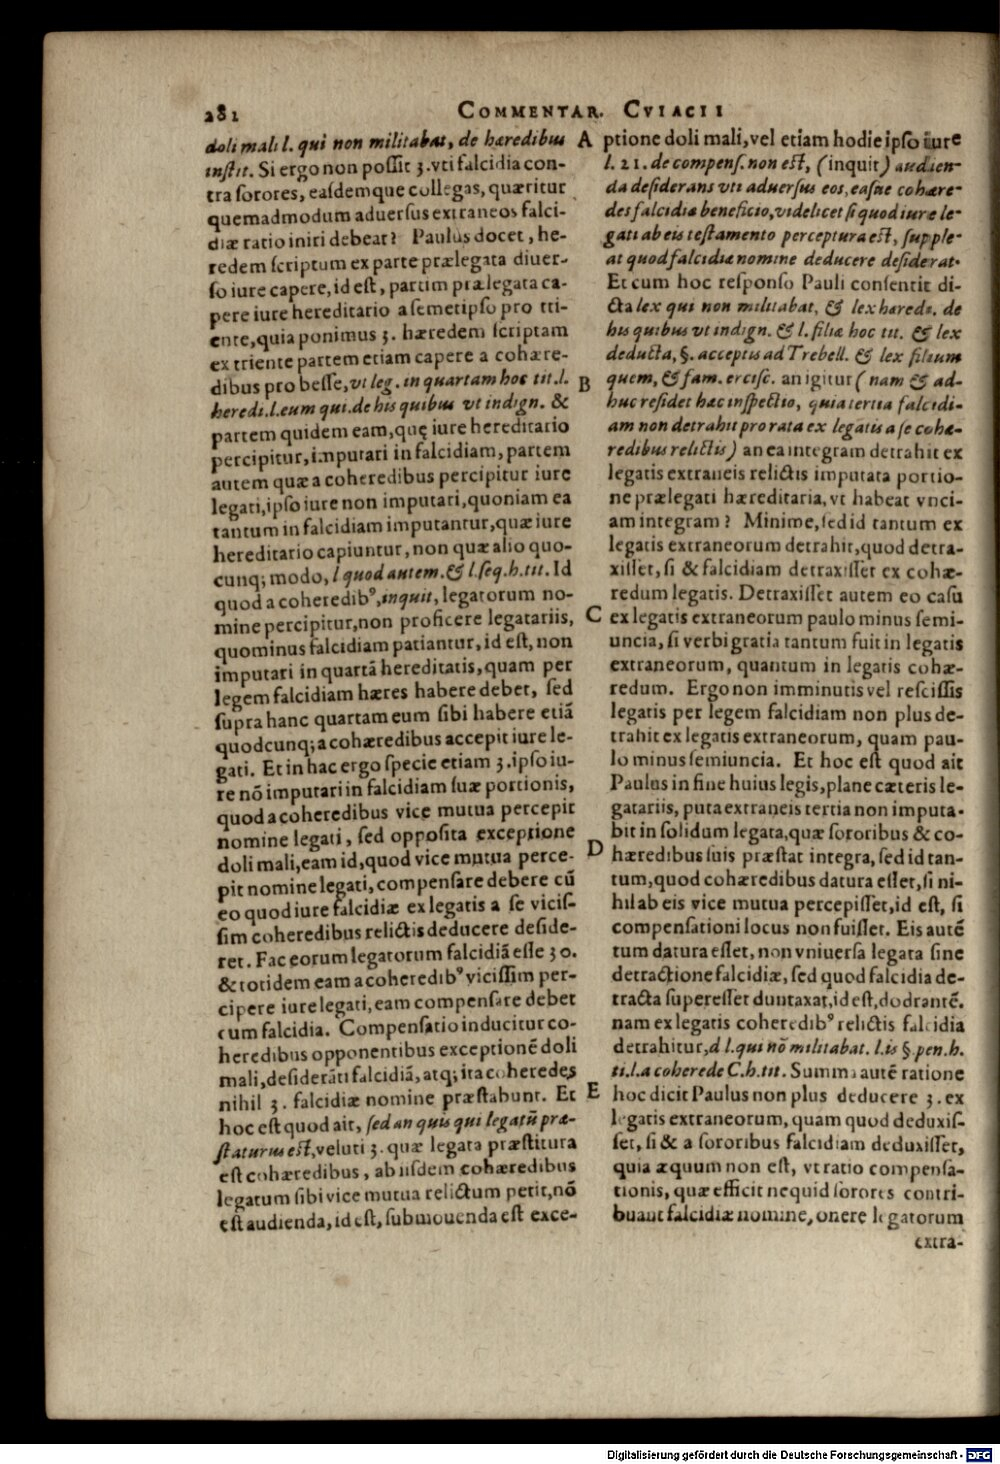 281
COMMENTAR. CVIACII
doli mali l. qui non militabat, de hæredibus
instit. Si ergo non possit 3. vti falcidia con-
tra sorores, easdemque collegas, quæritur
quemadmodum aduersus extraneos falci-
diæ ratio iniri debeat? Paulus docet, he-
redem scriptum ex parte prælegata diuer-
so iure capere, id est, partim prælegata ca-
pere iure hereditario a semetipso pro tri-
ente, quia ponimus 3. hæredem scriptam
ex triente partem etiam capere a cohære-
dibus pro besse, vt leg. in quartam hoc tit. l.
heredi. l. eum qui. de his quibus vt indign. &
partem quidem eam, quę iure hereditario
percipitur, imputari in falcidiam, partem
autem quæ a coheredibus percipitur iure
legati, ipso iure non imputari, quoniam ea
tantum in falcidiam imputantur, quæ iure
hereditario capiuntur, non quæ alio quo-
cunq; modo, l quod autem. & l. seq. h. tit. Id
quod a coheredibꝰ, inquit, legatorum no-
mine percipitur, non proficere legatariis,
quominus falcidiam patiantur, id est, non
imputari in quartā hereditatis, quam per
legem falcidiam hæres habere debet, sed
supra hanc quartam eum sibi habere etiā
quodcunq; a cohæredibus accepit iure le-
gati. Et in hac ergo specie etiam 3. ipso iu-
re nō imputari in falcidiam suæ portionis,
quod a coheredibus vice mutua percepit
nomine legati, sed opposita exceptione
doli mali, eam id, quod vice mutua perce-
pit nomine legati, compensare debere cū
eo quod iure falcidiæ ex legatis a se vicis-
sim coheredibus relictis deducere deside-
ret. Fac eorum legatorum falcidiā esse 30.
& totidem eam a coheredibꝰ vicissim per-
cipere iure legati, eam compensare debet
cum falcidia. Compensatio inducitur co-
heredibus opponentibus exceptionē doli
mali, desiderāti falcidiā, atq; ita coheredes
nihil 3. falcidiæ nomine præstabunt. Et
hoc est quod ait, sed an quis qui legatū præ-
staturus est, veluti 3. quæ legata præstitura
est cohæredibus, ab iisdem cohæredibus
legatum sibi vice mutua relictum petit, nō
est audienda, id est, submouenda est exce-
A
B
C
D
E
ptione doli mali, vel etiam hodie ipso iure
l. 21. de compens. non est, (inquit) audien-
da desiderans vti aduersus eos, easue cohære-
des falcidiæ beneficio, videlicet si quod iure le-
gati ab eis testamento perceptura est, supple-
at quod falcidiæ nomine deducere desiderat.
Et cum hoc responso Pauli consentit di-
cta lex qui non militabat, & lex hæredi. de
his quibus vt indign. & l. filiæ hoc tit. & lex
deducta, §. acceptis ad Trebell. & lex filium
quem, & fam. ercisc. an igitur (nam & ad-
huc residet hæc inspectio, quia tertia falcidi-
am non detrahit pro rata ex legatis a se cohæ-
redibus relictis) an ea integram detrahit ex
legatis extraneis relictis imputata portio-
ne prælegati hæreditaria, vt habeat vnci-
am integram? Minime, sed id tantum ex
legatis extraneorum detrahit, quod detra-
xisset, si & falcidiam detraxisset ex cohæ-
redum legatis. Detraxisset autem eo casu
ex legatis extraneorum paulo minus semi-
uncia, si verbi gratia tantum fuit in legatis
extraneorum, quantum in legatis cohæ-
redum. Ergo non imminutis vel rescissis
legatis per legem falcidiam non plus de-
trahit ex legatis extraneorum, quam pau-
lo minus semiuncia. Et hoc est quod ait
Paulus in fine huius legis, plane cæteris le-
gatariis, puta extraneis tertia non imputa-
bit in solidum legata, quæ sororibus & co-
hæredibus suis præstat integra, sed id tan-
tum, quod cohæredibus datura esset, si ni-
hil ab eis vice mutua percepisset, id est, si
compensationi locus non fuisset. Eis autē
tum datura esset, non vniuersa legata sine
detractione falcidiæ, sed quod falcidia de-
tracta superesset duntaxat, id est, dodrantē.
nam ex legatis coheredibꝰ relictis falcidia
detrahitur, d l. qui nō militabat. l. is §. pen. h.
ti. l. a coherede C. h. tit. Summa autē ratione
hoc dicit Paulus non plus deducere 3. ex
legatis extraneorum, quam quod deduxis-
set, si & a sororibus falcidiam deduxisset,
quia æquum non est, vt ratio compensa-
tionis, quæ efficit ne quid sorores contri-
buant falcidiæ nomine, onere legatorum
extra-
Digitalisierung gefördert durch die Deutsche Forschungsgemeinschaft - DFG